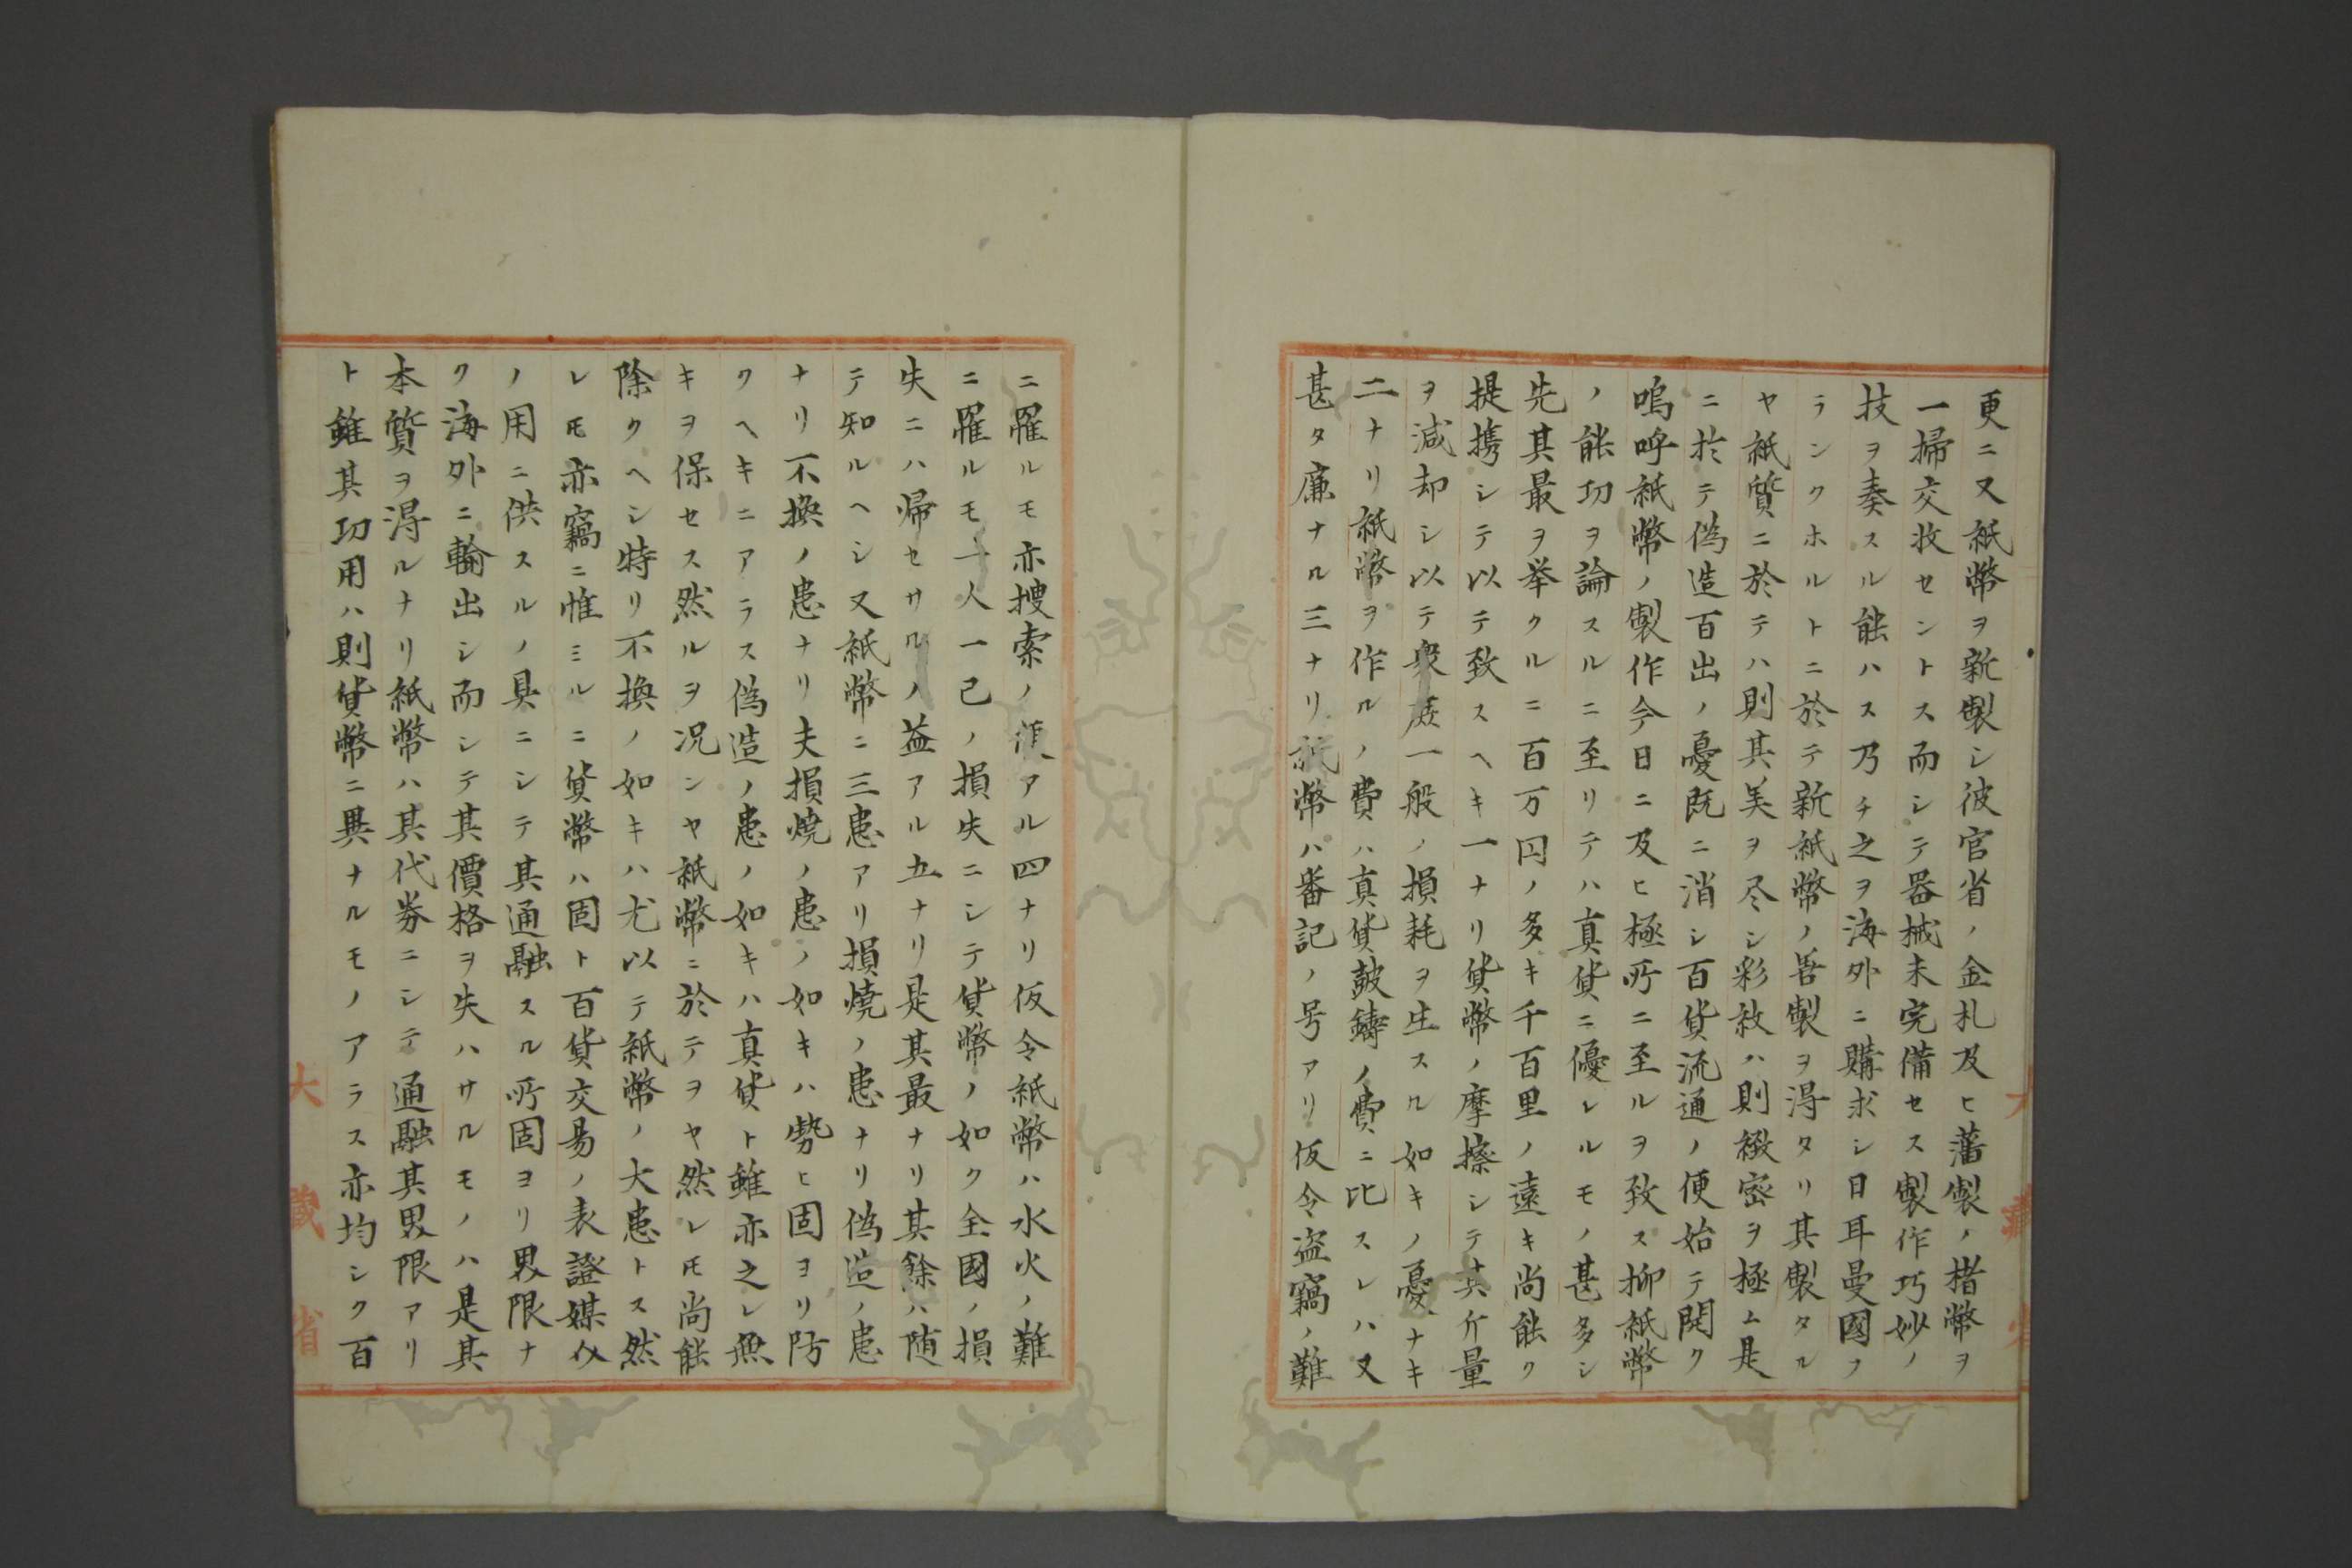 更ニ又紙幣ヲ新製シ彼官省ノ金札及ヒ藩製ノ楮幣ヲ
一掃交收セントス而シテ器械未完備セス製作巧妙ノ
技ヲ奏スル能ハス乃チ之ヲ海外ニ購求シ日耳曼國フ
ランクホルトニ於テ新紙幣ノ善製ヲ得タリ其製タル
ヤ紙質ニ於テハ則其美ヲ尽シ彩紋ハ則緻密ヲ極ム是
ニ於テ偽造百出ノ憂既ニ消シ百貨流通ノ便始テ開ク
嗚呼紙幣ノ製作今日ニ及ヒ極所ニ至ルヲ致ス抑紙幣
ノ能功ヲ論スルニ至リテハ真貨ニ優レルモノ甚多シ
先其最ヲ挙クルニ百万円ノ多キ千百里ノ遠キ尚能ク
提携シテ以テ致スヘキ一ナリ貨幣ノ摩擦シテ其斤量
ヲ減却シ以テ衆庶一般ノ損耗ヲ生スル如キノ憂ナキ
二ナリ紙幣ヲ作ルノ費ハ真貨皷鑄ノ費ニ比スレハ又
甚タ廉ナル三ナリ紙幣ハ番記ノ号アリ仮令盗竊ノ難
ニ罹ルモ亦捜索ノ便アル四ナリ仮令紙幣ハ水火ノ難
ニ罹ルモ一人一己ノ損失ニシテ貨幣ノ如ク全國ノ損
失ニハ帰セサルノ益アル五ナリ是其最ナリ其餘ハ随
テ知ルヘシ又紙幣ニ三患アリ損焼ノ患ナリ偽造ノ患
ナリ不換ノ患ナリ夫損焼ノ患ノ如キハ勢ヒ固ヨリ防
クヘキニアラス偽造ノ患ノ如キハ真貨ト雖亦之レ無
キヲ保セス然ルヲ况ンヤ紙幣ニ於テヲヤ然レ𪜈尚能
除クヘシ特リ不換ノ如キハ尤以テ紙幣ノ大患トス然
レ𪜈亦竊ニ惟ミルニ貨幣ハ固ト百貨交易ノ表證媒介
ノ用ニ供スルノ具ニシテ其通融スル所固ヨリ界限ナ
ク海外ニ輸出シ而シテ其價格ヲ失ハサルモノハ是其
本質ヲ得ルナリ紙幣ハ其代券ニシテ通融其界限アリ
ト雖其功用ハ則貨幣ニ異ナルモノアラス亦均シク百
大藏省